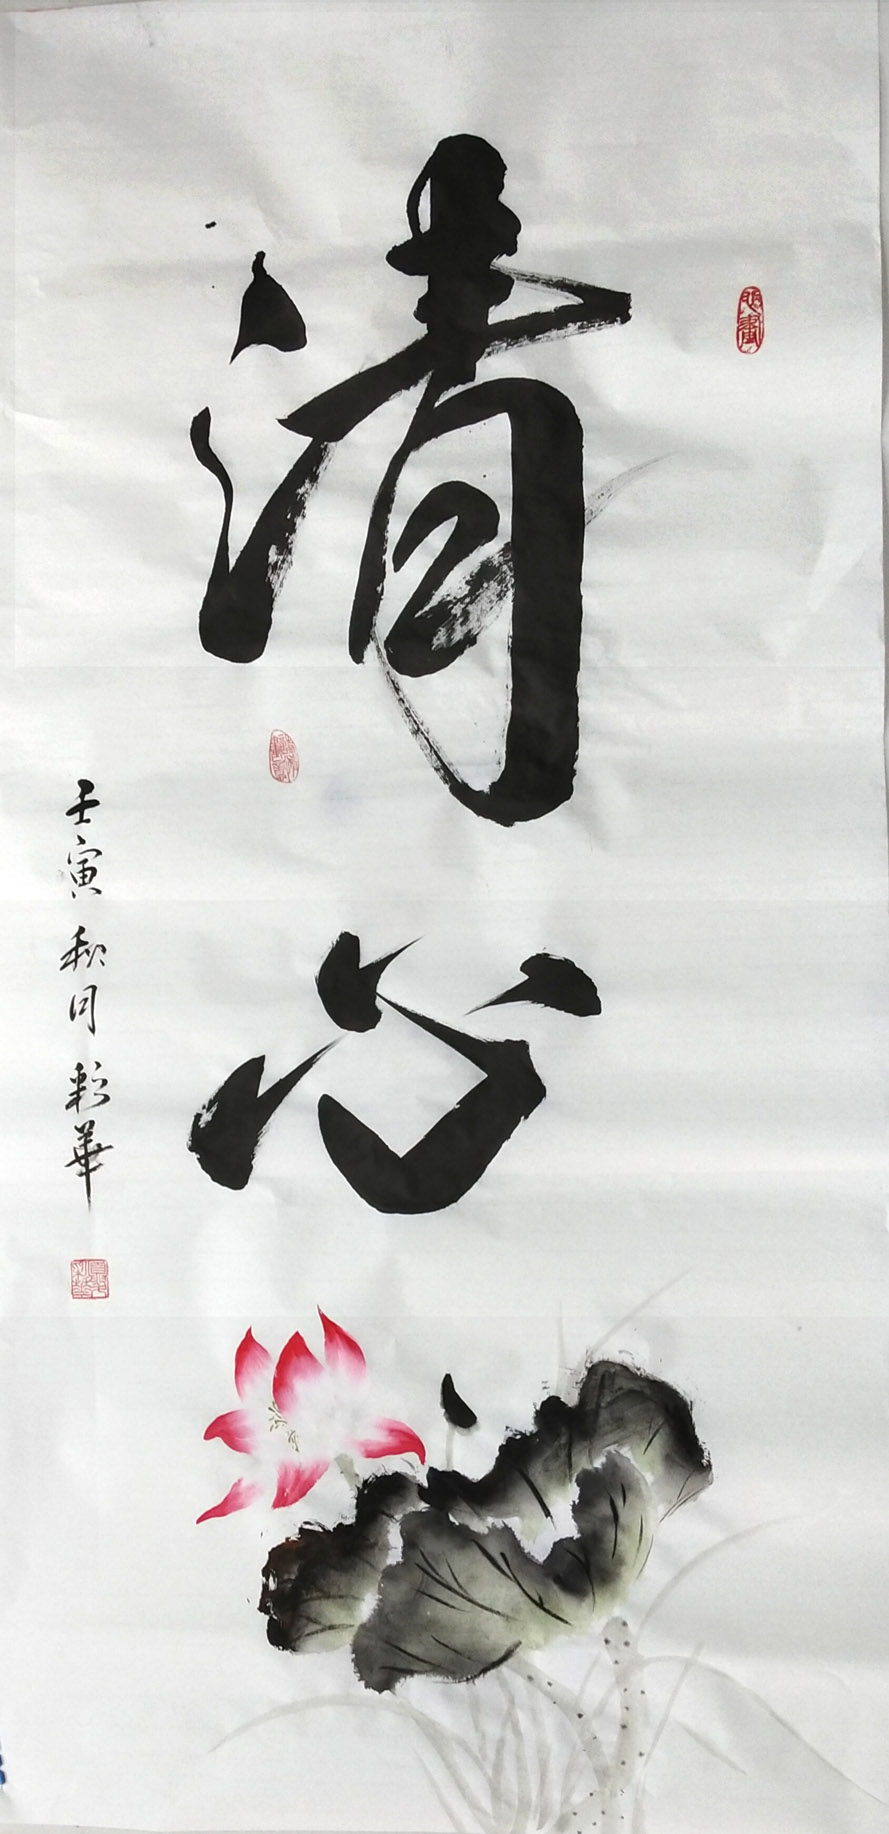 清心
壬寅秋月彩華